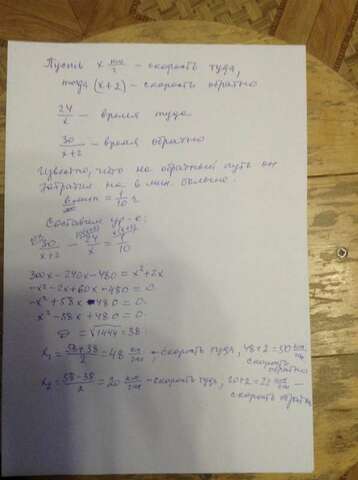 Пусть x км/ч – скорость туда,
тогда (x+2) – скорость обратно
24/x – время туда
30/x+2 – время обратно
Известно, что на обратный путь он
затратил на 6 мин. больше.
6 мин = 1/10 ч
Составим ур-е:
30/x+2 - 24/x = 1/10
300x - 240x - 480 = x²+2x
-x² - 2x + 60x - 480 = 0
-x² + 58x - 480 = 0
x² - 58x + 480 = 0
D = √1444 = 38
x₁ = 58+38/2 = 48 км/час – скорость туда, 48+2=50 км/час
скорость обратно
x₂ = 58-38/2 = 20 км/час – скорость туда, 20+2=22 км/час –
скорость обратно